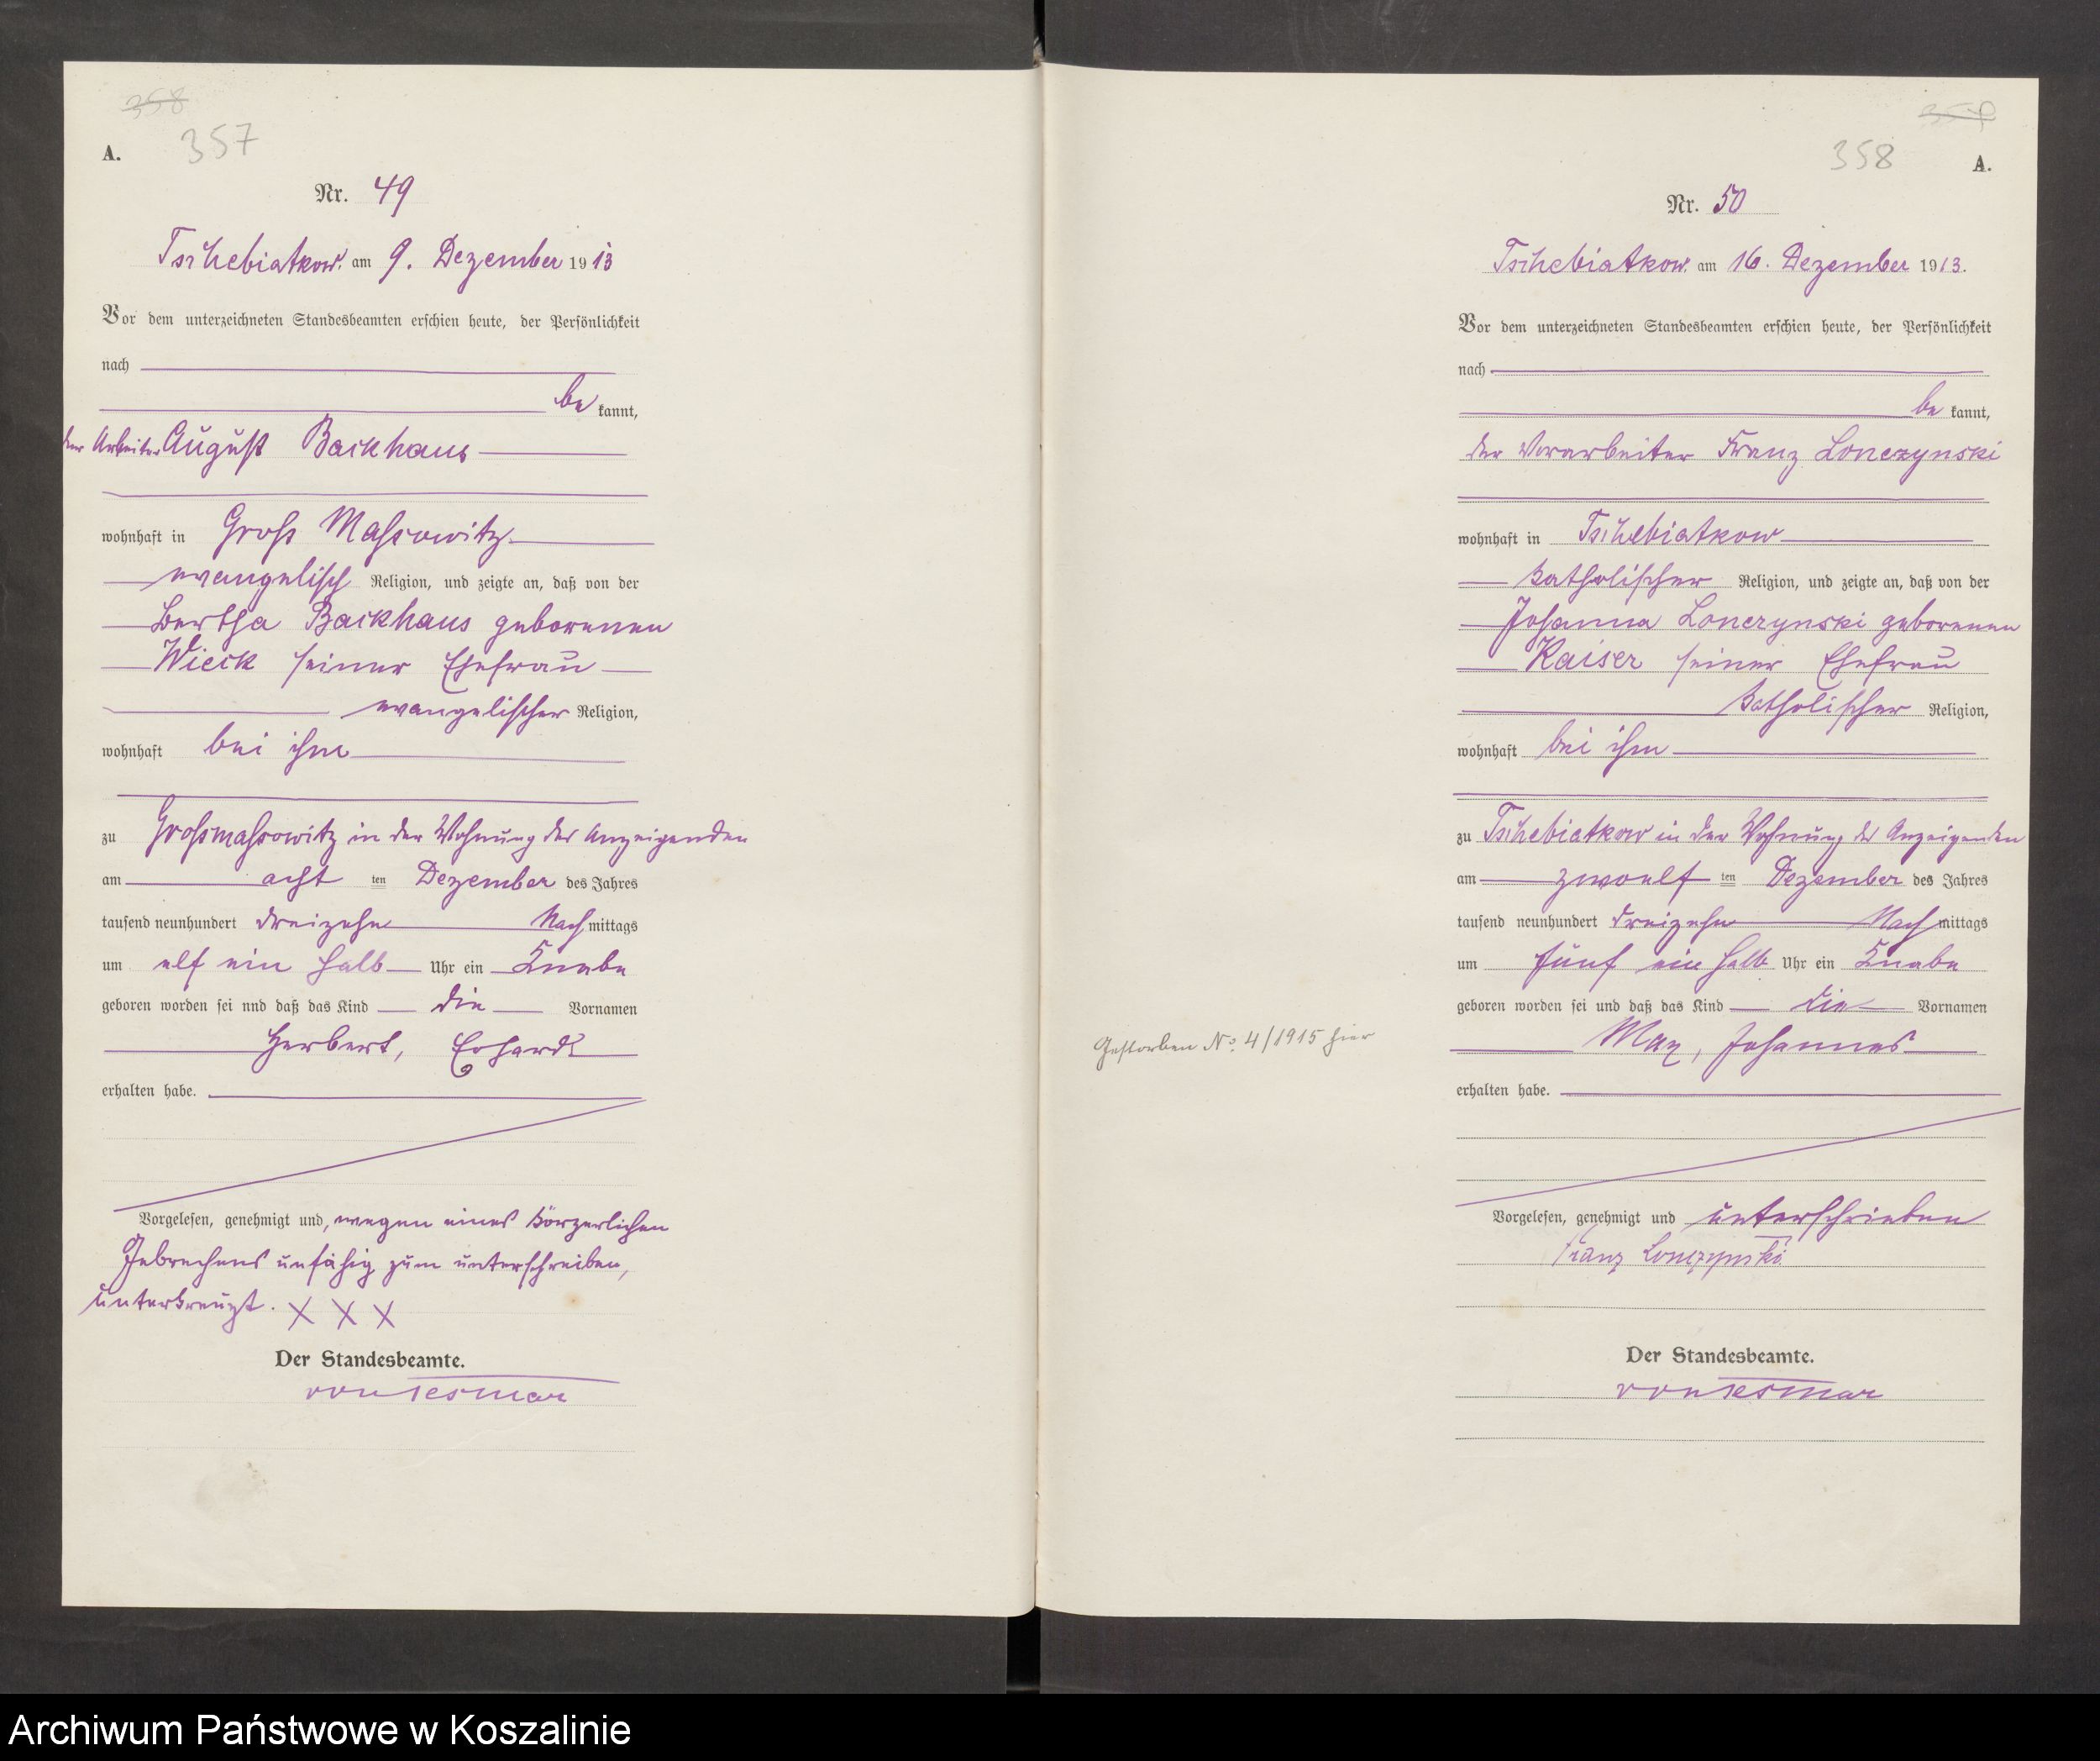 358
357
A.
Nr. 49
Tschebiatkow. am 9. Dezember 1913
Vor dem unterzeichneten Standesbeamten erschien heute, der Persönlichkeit
nach
be kannt,
der Arbeiter August Backhaus
wohnhaft in Groß Massowitz
evangelisch Religion, und zeigte an, daß von der
Bertha Backhaus geborenen
Wieck seiner Ehefrau
evangelischer Religion,
wohnhaft bei ihm
zu Großmassowitz in der Wohnung des Anzeigenden
am acht ten Dezember des Jahres
tausend neunhundert dreizehn Nach mittags
um elf ein halb Uhr ein Knabe
geboren worden sei nnd daß das Kind die Vornamen
Herbert, Erhardt
erhalten habe.
Vorgelesen, genehmigt und, wegen eines körperlichen
Gebrechens unfähig zum unterschreiben,
unterkreuzt. X X X
Der Standesbeamte.
von Tesmar
359
358
A.
Nr. 50
Tschebiatkow. am 16. Dezember 1913.
Vor dem unterzeichneten Standesbeamten erschien heute, der Persönlichkeit
nach
be kannt,
der Vorarbeiter Franz Lonczynski
wohnhaft in Tschebiatkow
katholischer Religion, und zeigte an, daß von der
Johanna Lonczynski geborenen
Kaiser seiner Ehefrau
katholischer Religion,
wohnhaft bei ihm
zu Tschebiatkow in der Wohnung des Anzeigenden
am zwoelf ten Dezember des Jahres
tausend neunhundert dreizehn Nach mittags
um fünf ein halb Uhr ein Knabe
geboren worden sei und daß das Kind die Vornamen
Gestorben No. 4/1915 hier
Max, Johannes
erhalten habe.
Vorgelesen, genehmigt und unterschrieben
Franz Lonczynski
Der Standesbeamte.
von Tesmar
Archiwum Państwowe w Koszalinie